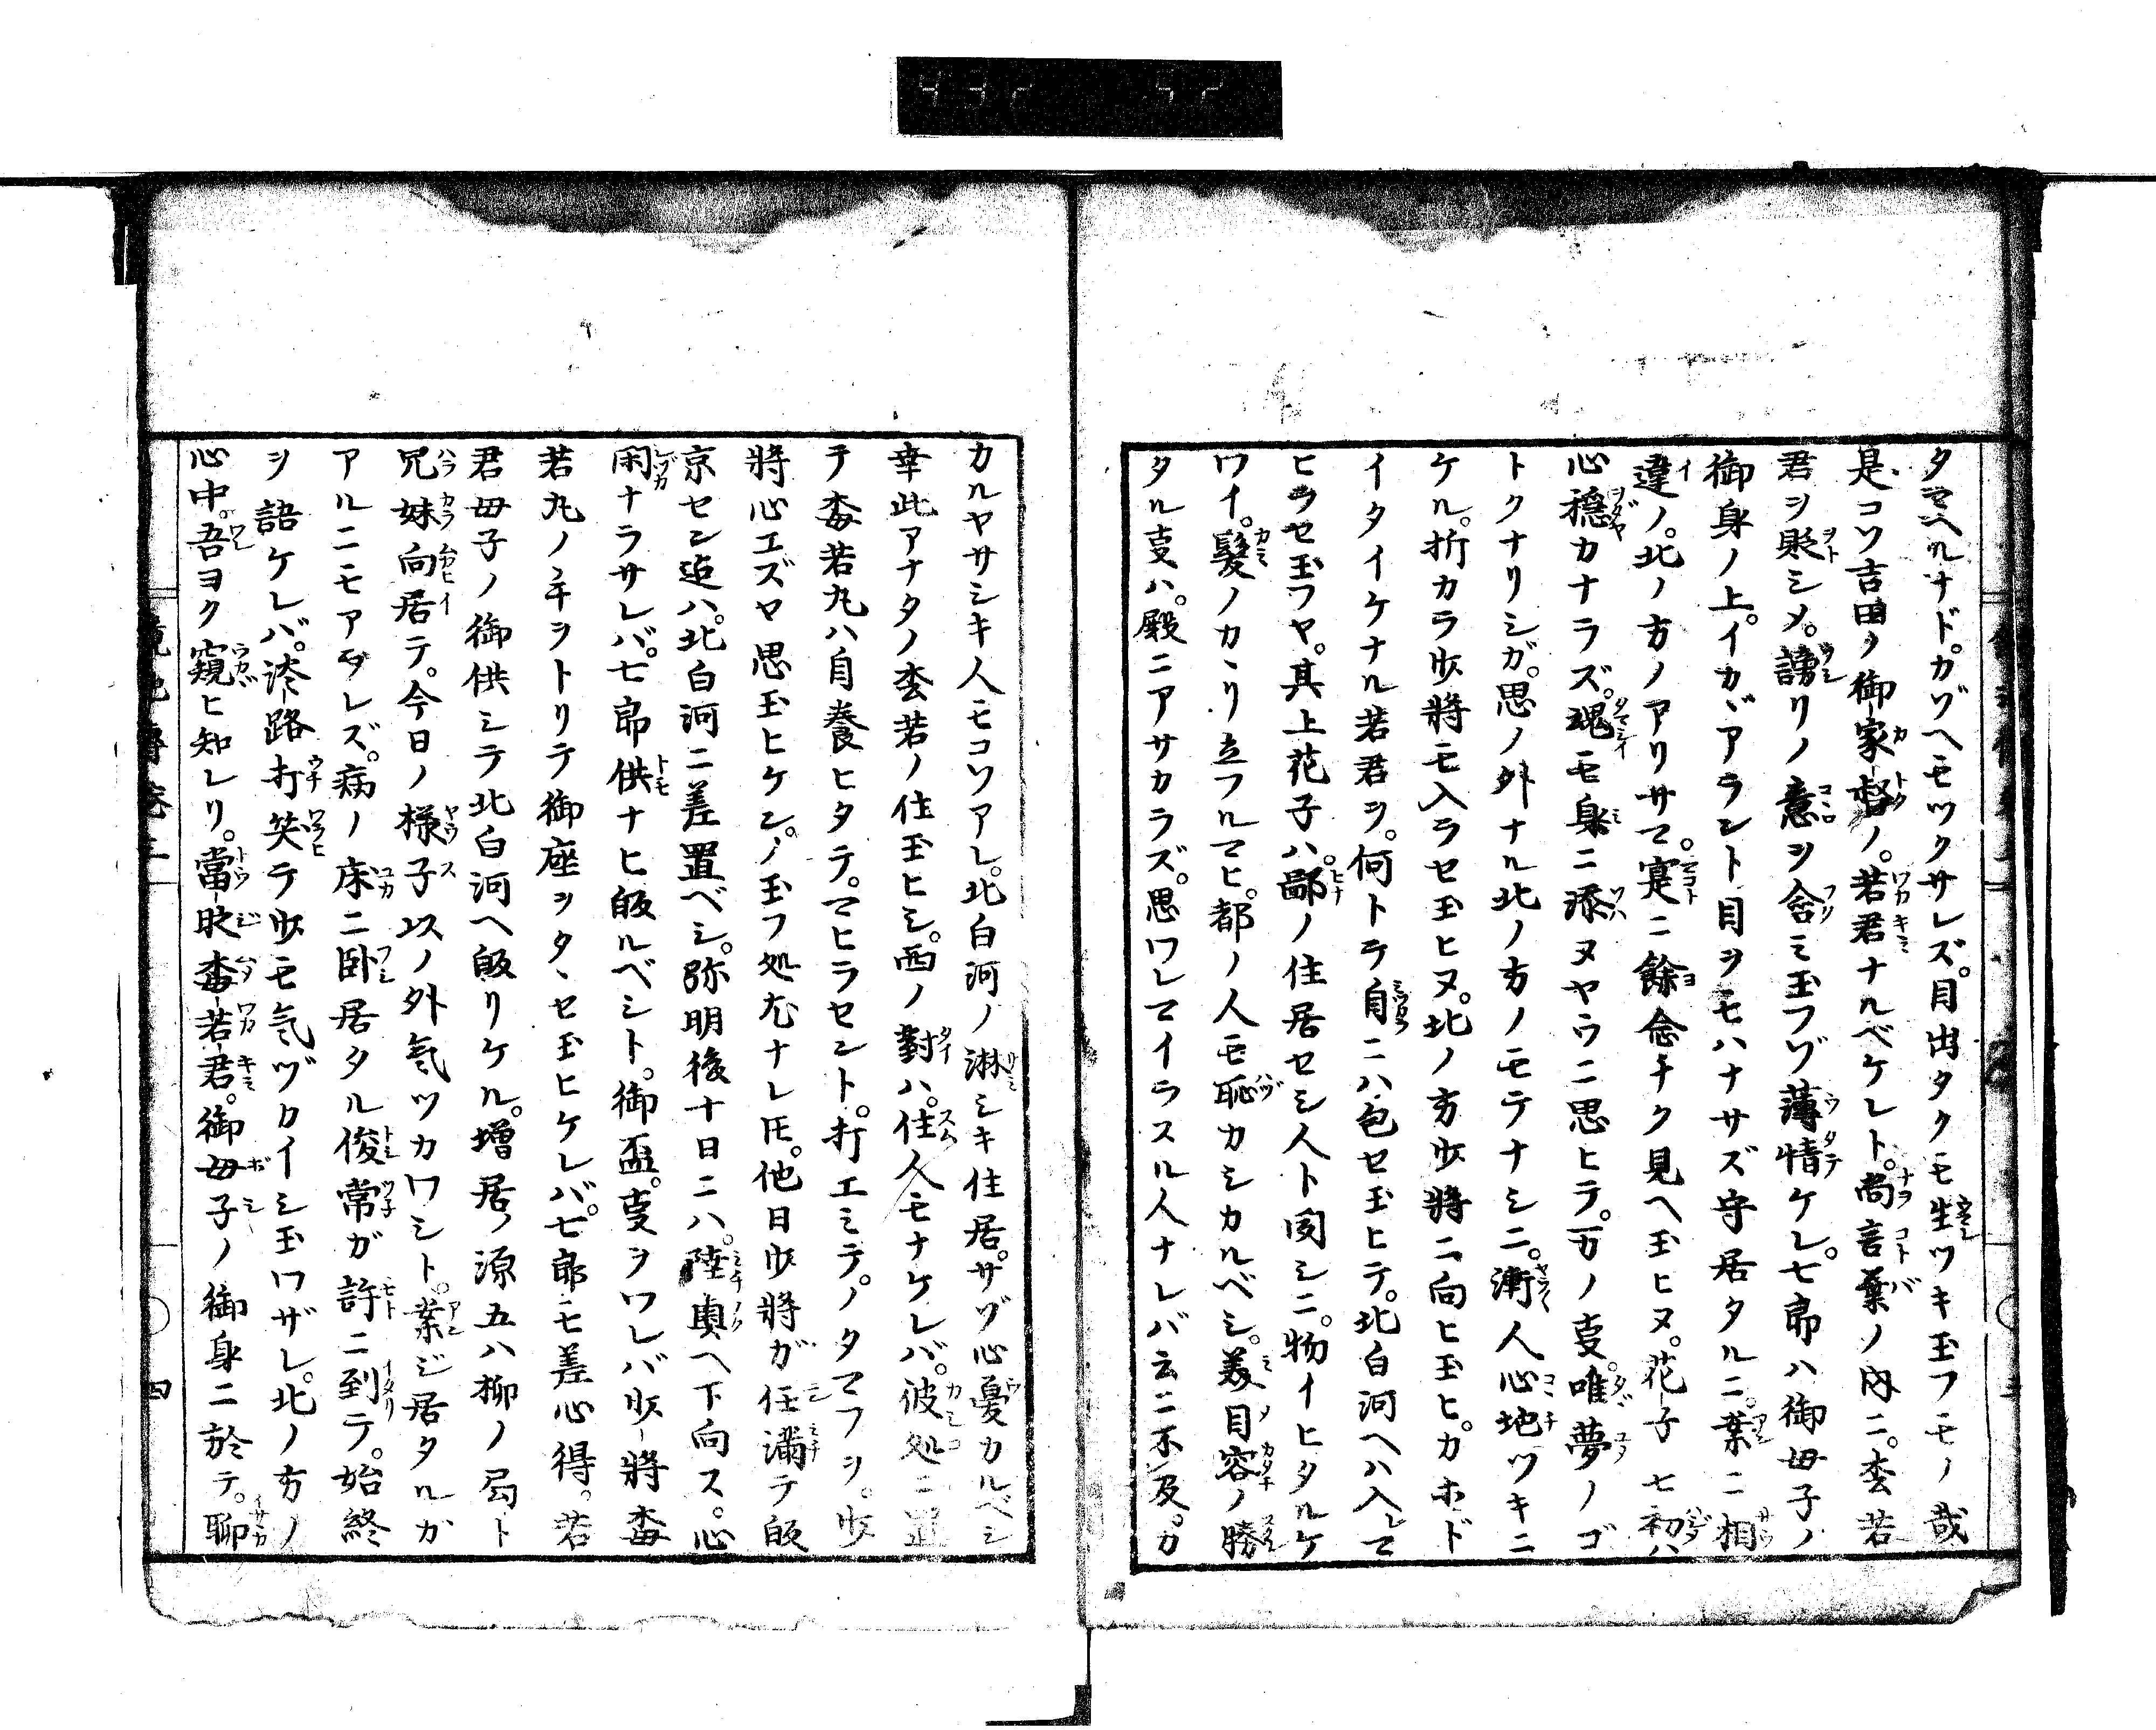 タマヘルナド。カゾヘモツクサレズ。目出タクモ生ツキ玉フモノ哉
是コソ吉田ノ御家督ノ。若君ナルベケレト。尚言葉ノ内ニ。枩若
君ヲ貶シメ。謗リノ意ヲ含ミ玉フゾ薄情ケレ。七郎ハ御母子ノ
御身ノ上。イカヾアラント目ヲモハナサズ守居タルニ。案ニ相
違ノ。北ノ方ノアリサマ。寔ニ餘念チク見ヘ玉ヒヌ。花子七初ハ
心穏カナラズ。魂モ身ニ添ヌヤウニ思ヒテ。万ノ叓。唯夢ノゴ
トクナリシガ。思ノ外ナル北ノ方ノモテナシニ。漸人心地ツキニ
ケル。折カラ少將モ入ラセ玉ヒヌ。北ノ方少將ニ向ヒ玉ヒ。カホド
イタイケナル若君ヲ。何トテ自ニハ包セ玉ヒテ。北白河ヘハ入レマ
ヒラセ玉フヤ。其上花子ハ。鄙ノ住居セシ人ト閔シニ。物イヒタルケ
ワイ。髮ノカヽリ立フルマヒ。都ノ人モ恥カシカルベシ。美目容ノ勝
タル叓ハ。殿ニアサカラズ。思ワレマイラスル人ナレバ云ニ不及。カ
カルヤサシキ人モコソアレ。北白河ノ淋シキ住居。サゾ心憂カルベシ
幸此アナタノ枩若ノ住玉ヒシ。西ノ對ハ。住人モナケレバ。彼処ニ置
テ梅若丸ハ自養ヒタテ。マヒラセント。打エミテ。ノタマフヲ。少
將心エズヤ思玉ヒケン。ノ玉フ処尤ナレ𪜈。他日少將ガ任満テ皈
京セン迠ハ。北白河ニ差置ベシ。弥明後十日ニハ。陸奥ヘ下向ス。心
閑ナラサレバ。七郎供ナヒ皈ルベシト。御盃。叓ヲワレバ少將梅
若丸ノ手ヲトリテ御座ヲタヽセ玉ヒケレバ。七郎モ差心得。若
君母子ノ御供シテ北白河ヘ皈リケル。増居ノ源五ハ柳ノ局ト
兄妹向居テ。今日ノ様子以ノ外氣ツカワシト。案ジ居タルガ
アルニモアラレズ。病ノ床ニ臥居タル俊常ガ許ニ到テ。始終
ヲ語ケレバ。淡路打笑テ少モ氣ヅカイシ玉ワザレ。北ノ方ノ
心中。吾ヨク窺ヒ知レリ。當时梅若君。御母子ノ御身ニ於テ。聊
四